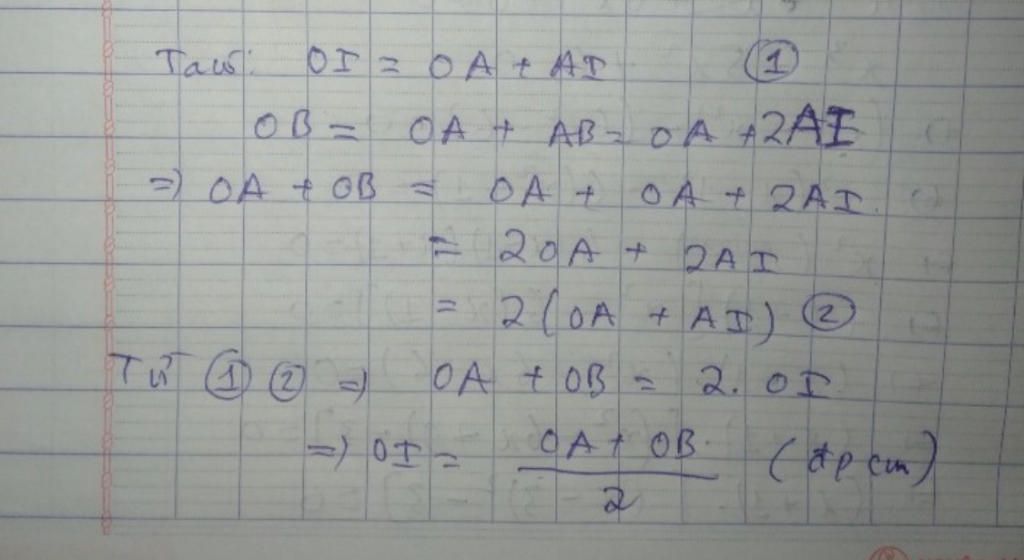 Ta có: OI = OA + AI ①
OB = OA + AB = OA + 2AI
=> OA + OB = OA + OA + 2AI.
= 2OA + 2AI
= 2(OA + AI) ②
Từ ① ② => OA + OB = 2. OI
=> OI = \frac{OA + OB}{2} (đpcm)